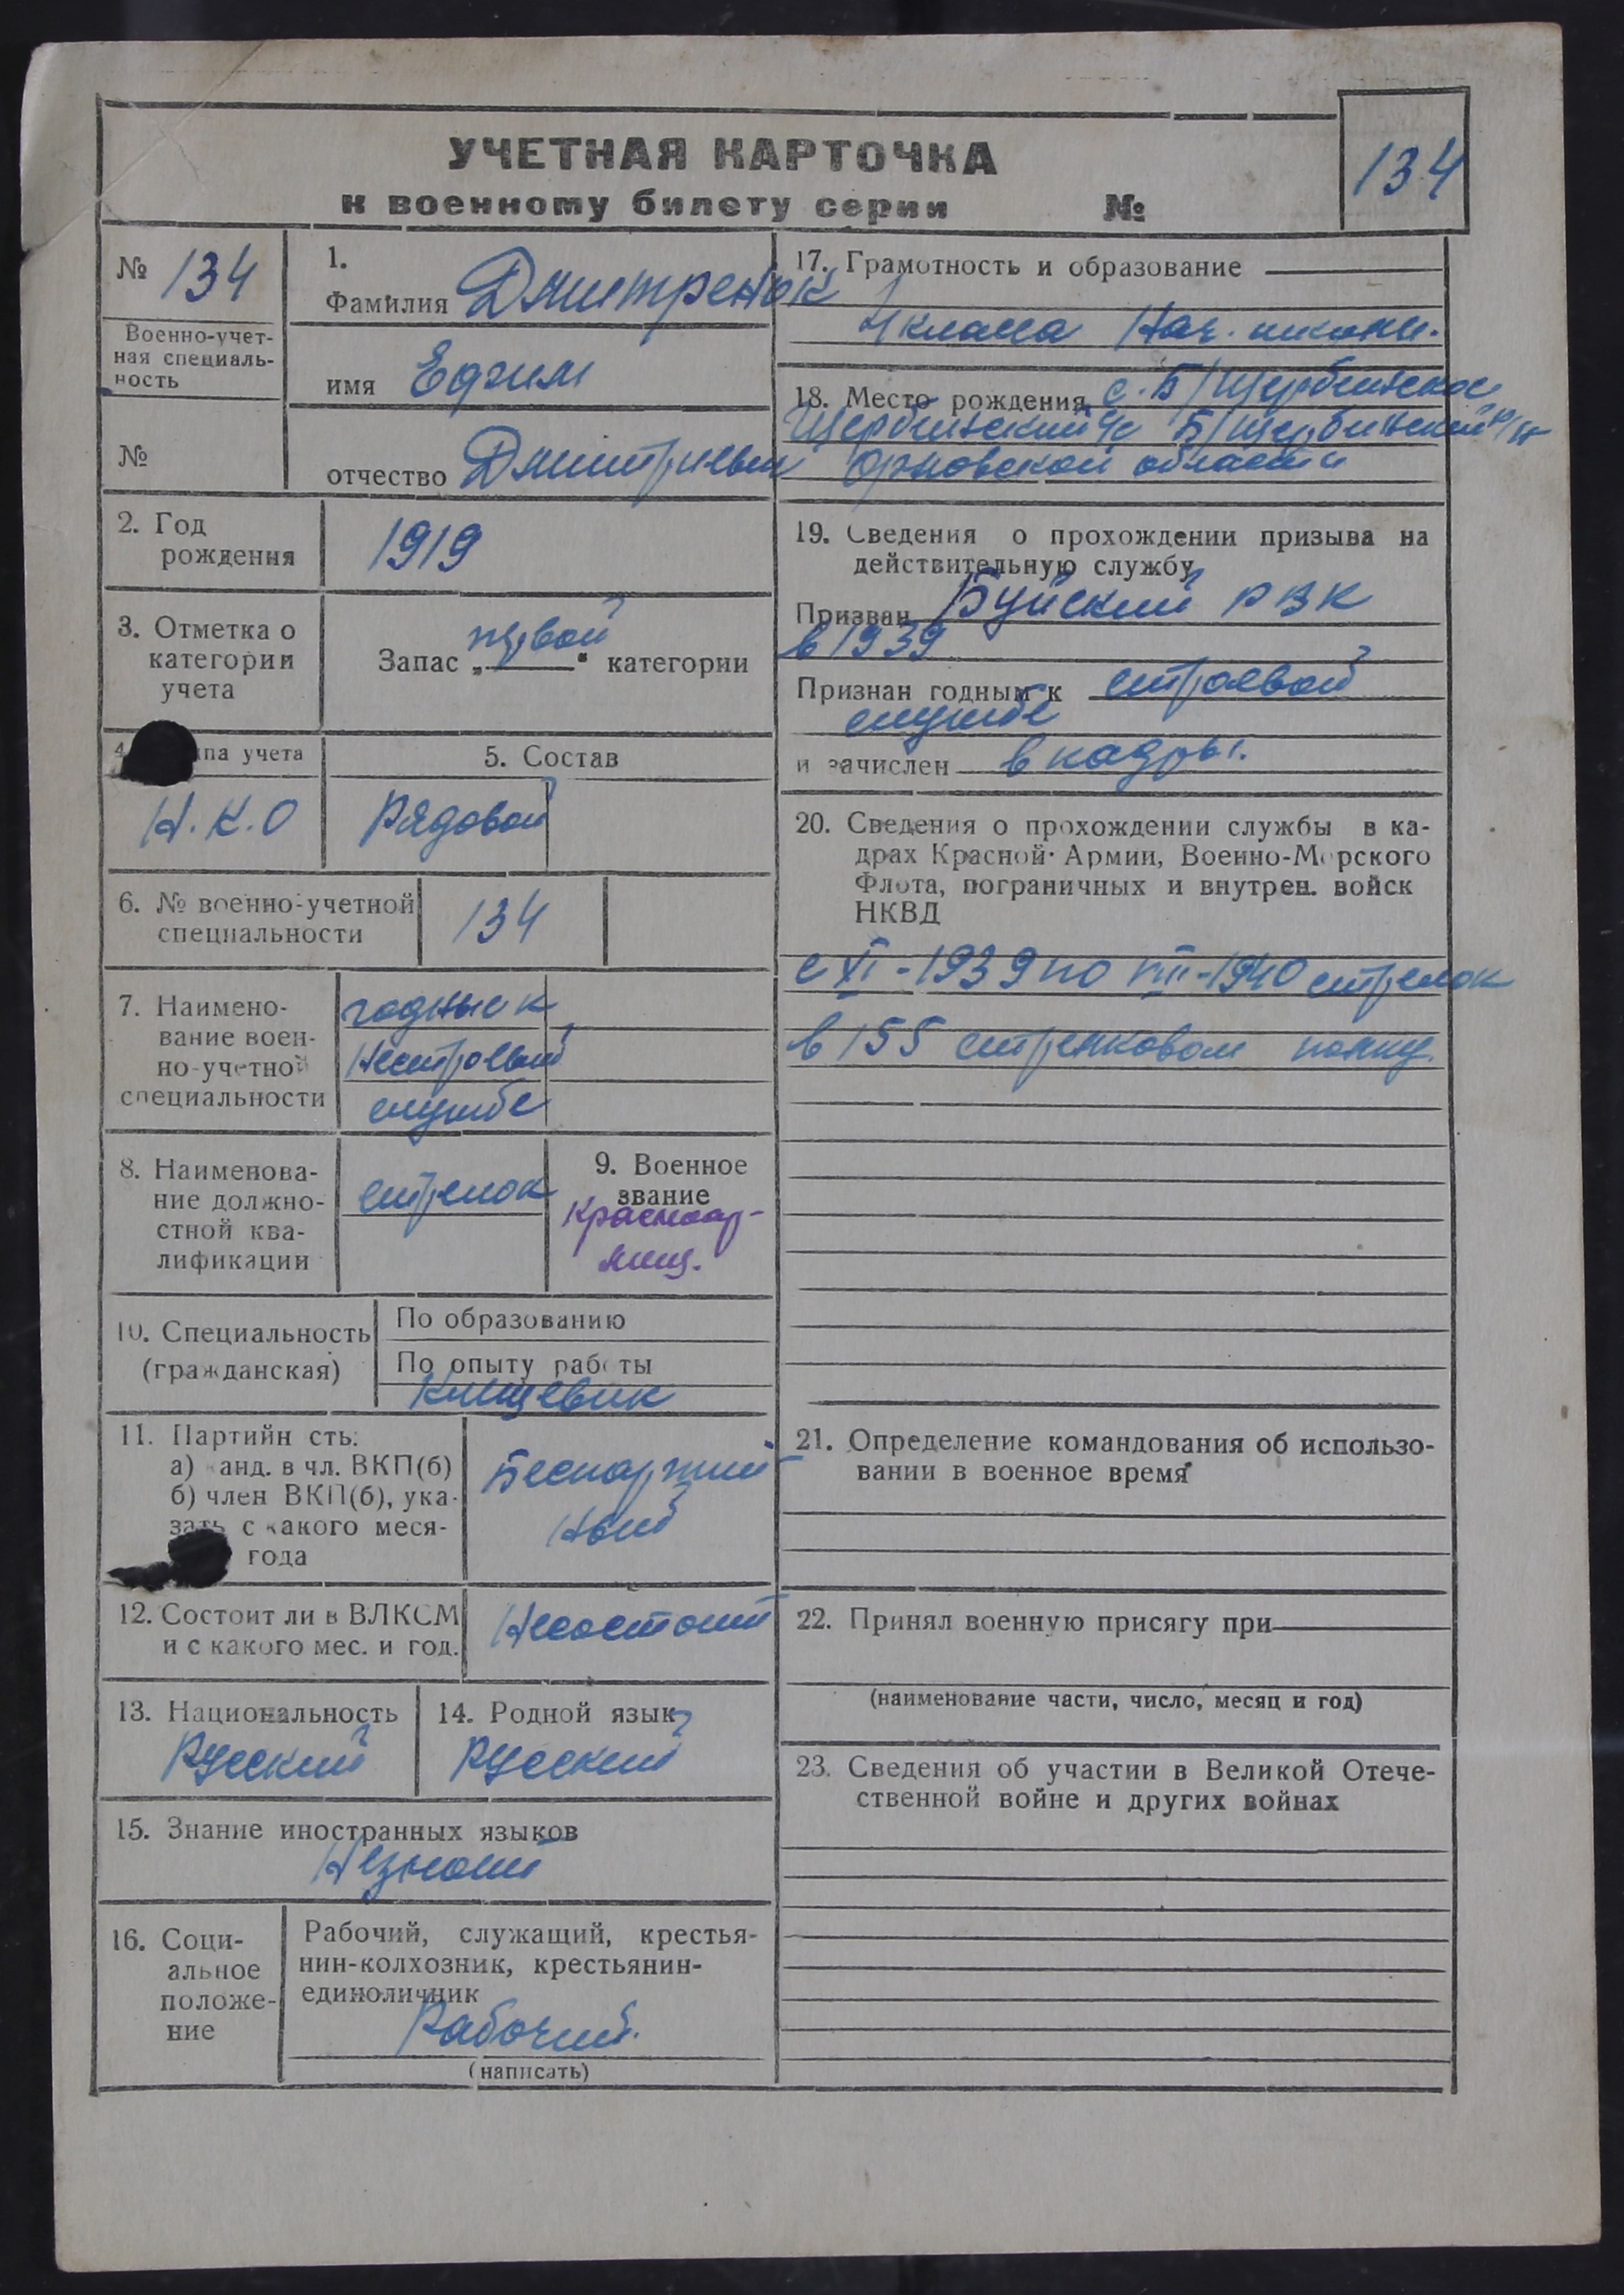 УЧЕТНАЯ КАРТОЧКА
к военному билету серии №
134
№ 134
Военно-учет-
ная специаль-
ность
№
1.
Фамилия Дмитренок
имя Ефим
отчество Дмитриевич
2. Год
рождения
1919
3. Отметка о
категории
учета
Запас „первой" категории
4. па учета
Н.К.О
5. Состав
Рядовой
6. № военно-учетной
специальности
134
7. Наимено-
вание воен-
но-учетной
специальности
годные к
нестроевой
службе
8. Наименова-
ние должно-
стной ква-
лификации
стрелок
9. Военное
звание
Красноар-
меец.
10. Специальность
(гражданская)
По образованию
По опыту работы
11. Партийн сть:
а) канд. в чл. ВКП(б)
б) член ВКП(б), ука-
зать с какого меся-
года
Беспартий
ный
12. Состоит ли в ВЛКСМ
и с какого мес. и год.
Несостоит
13. Национальность
Русский
14. Родной язык
Русский
15. Знание иностранных языков
Незнает
16. Соци-
альное
положе-
ние
Рабочий, служащий, крестья-
нин-колхозник, крестьянин-
единоличник
Рабочий.
(написать)
17. Грамотность и образование
4 класса Нач. школы.
18. Место рождения с. Б/Щербинское
Щербинский с/с Б/Щербинский р/н
Орловской области
19. Сведения о прохождении призыва на
действительную службу
Призван Буйский РВК
в 1939
Признан годным к строевой
службе
и зачислен в кадры.
20. Сведения о прохождении службы в ка-
драх Красной Армии, Военно-Морского
Флота, пограничных и внутрен. войск
НКВД
с XI-1939 по VIII-1940 стрелок
в 155 стрелковом полку.
21. Определение командования об использо-
вании в военное время
22. Принял военную присягу при
(наименование части, число, месяц и год)
23. Сведения об участии в Великой Отече-
ственной войне и других войнах